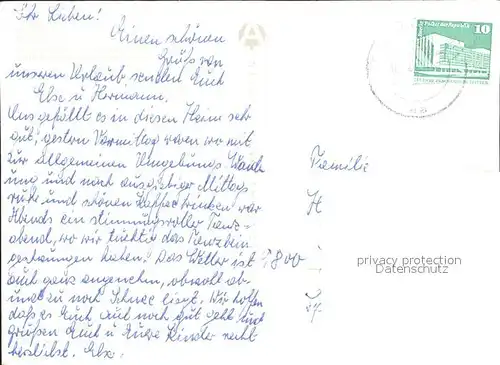 Ihr Lieben!
Einen schönen
Gruß von
unseren Urlaub senden Euch
Else u Hermann.
Uns gefällt es in diesen Heim sehr
gut, gestern Vormittag waren wir mit
zur allgemeinen Umgebungs Wande
rung und nach ausgiebiger Mittags
ruhe und schönen Kaffee trinken war
Abends ein stimmungsvoller Tanz-
abend, wo wir tüchtig das Tanzbein
geschwungen haben. Das Wetter ist
auch ganz angenehm, obwohl ab
und zu noch Schnee liegt. Wir hoffen
daß es Euch auch noch gut geht und
grüßen Euch u Eure Kinder recht
herzlichst. Else.
10
Familie
H
7800
privacy protection
Datenschutz